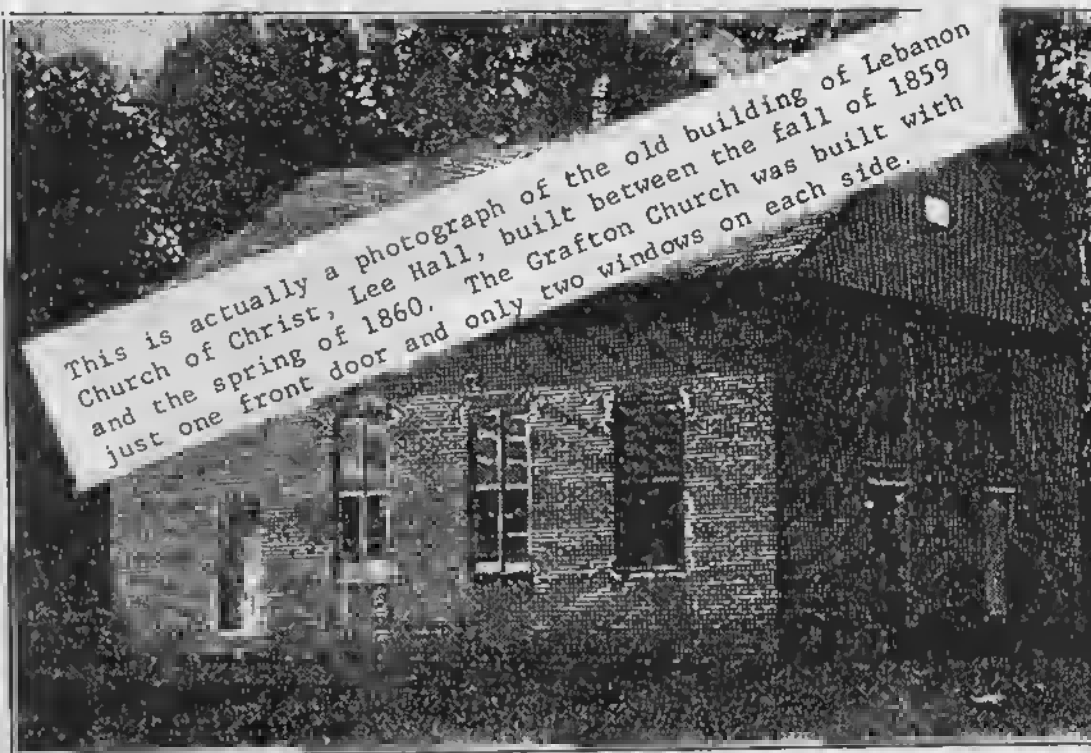 This is actually a photograph of the old building of Lebanon
Church of Christ, Lee Hall, built between the fall of 1859
and the spring of 1860. The Grafton Church was built with
just one front door and only two windows on each side.